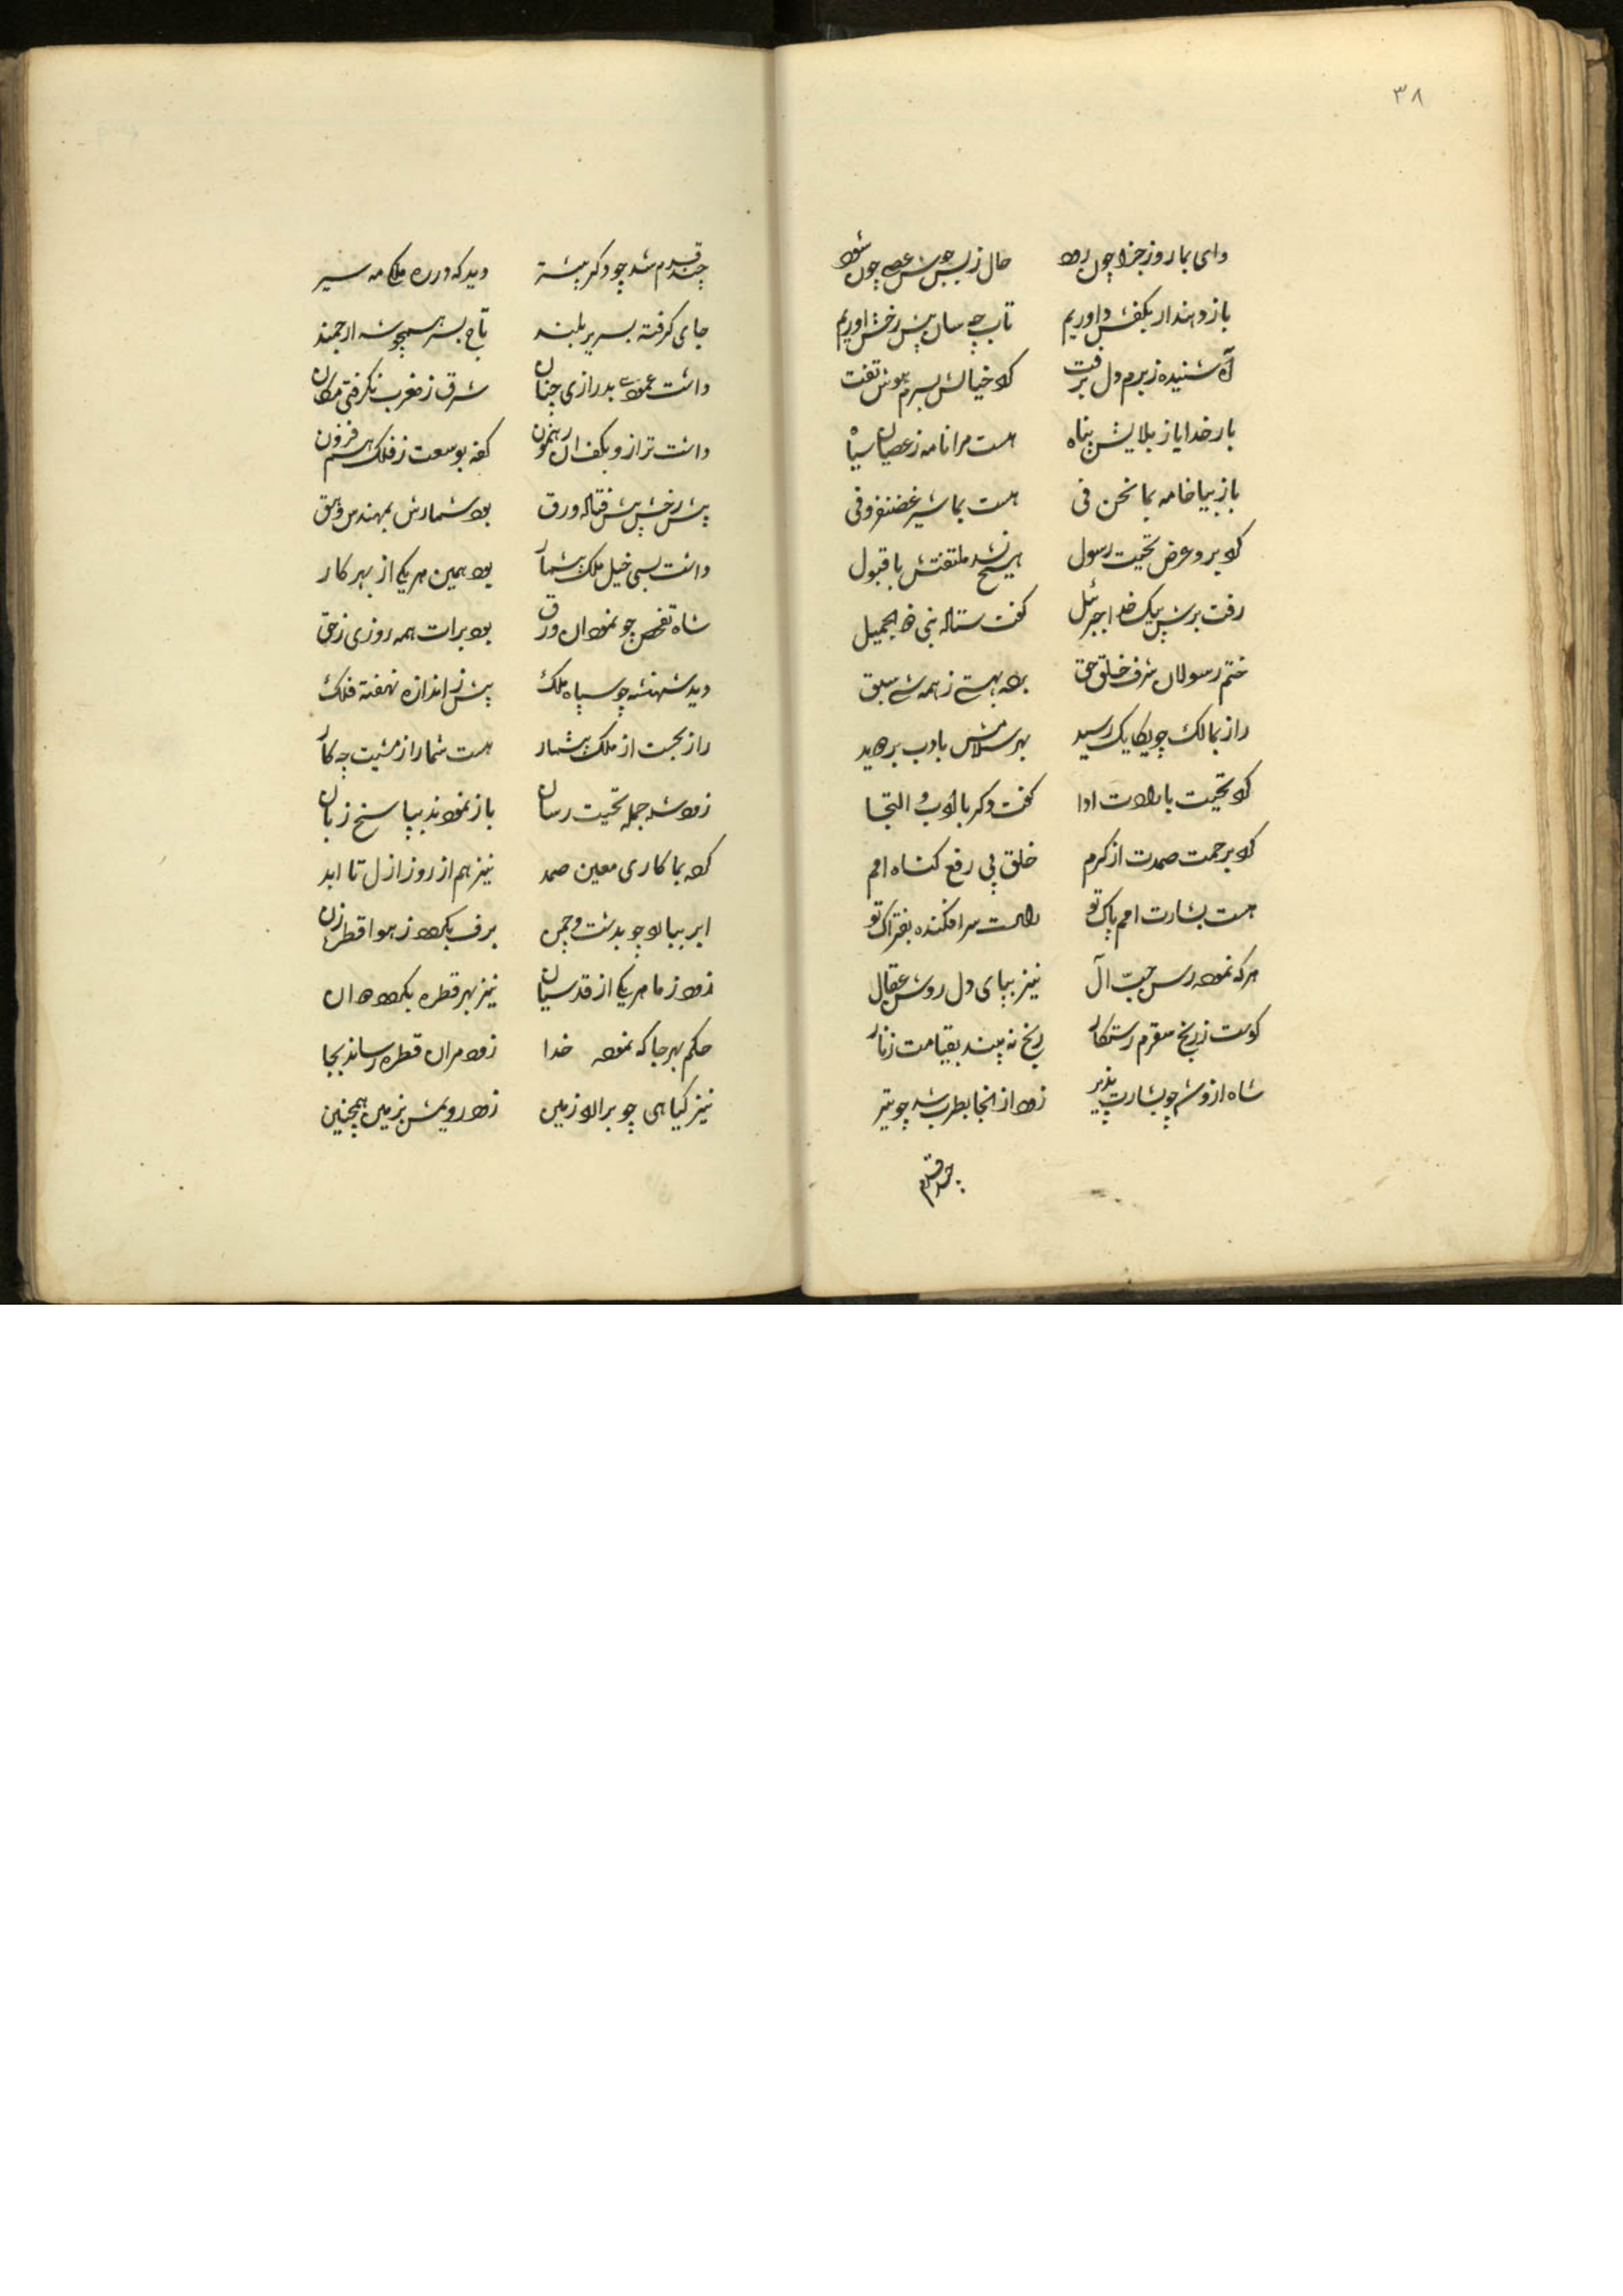 ۳۸
وای بما روز جزا چون رود حال ز بس جوشش عصیان چون شود
باز دهند ار بکفش داوریم تاب چه سان پیش رخش اوریم
آه شنیده ز برم دل برفت کرد خیالش بسرم هوش تفت
بار خدایا ز بلایش پناه هست مرا نامه ز عصیان سیاه
باز بیا خامه بما نحن فی هست بما شیر غضنفر وفی
کرد برو عرض تحیت رسول هیچ نشد ملتفتش با قبول
رفت برش پیک خدا جبرئیل گفت ستاله نبی الجمیل
ختم رسولان شرف خلق حق برده بهستی ز همه شی سبق
راز بمالک چو یکایک رسید بهر سلامش بادب برجهید
کرد تحیت بارادت ادا گفت دگر با ادب و التجا
کرد برحمت صمدت از کرم خلق پی رفع گناه امم
هست بشارت امم پاک تو راست سرافکنده بفتراک تو
هرکه نموده رسن حب آل نیز بپای دل روشن عقال
کوست ز رنج سقرم رستگار رنج نه بیند بقیامت ز نار
شاه ازو شد چو بشارت پذیر زود از انجا بطرب شد چو تیر
چند قدم
چند قدم شد چو دگر پیشتر دید که در ره ملک مه سیر
جای گرفته بسریر بلند تاج بسر همچو شه ارجمند
داشت عمودی بدرازی چنان شرق ز مغرب نگرفتی مکان
داشت ترازو بکف ان رهنمون کفه بوسعت ز فلک هم فزون
پیش رخش پیش فتاله ورق بود شمارش بمهندس وهق
داشت بسی خیل ملک بیشمار بود همین هریکی از بهر کار
شاه تفحص چو نمود ان ورق بود برات همه روزی ز حق
دید شهنشه چو سپاه ملک بیش ز اندازه نهفته فلک
راز بجست از ملک بیشمار هست شما را ز مشیت چه کار
زود شد جمله تحیت رسان باز نمودند بپاسخ زبان
کرد بما کاری معین صمد نیز هم از روز ازل تا ابد
ابر ببارد چو بدشت و چمن برف بگردد ز هوا قطره زن
زود ز ما هریکی از قدسیان نیز بهر قطره بگردد هران
حکم بهر جا که نموده خدا زود مران قطره رساند بجا
نیز گیاهی چو برارد زمین زود رویش بزمین همچنین